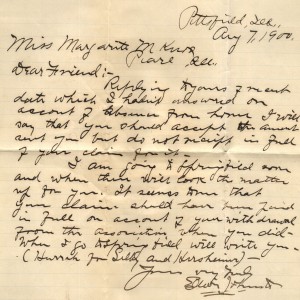 Pittsfield, Ills.,
Aug 7, 1900.
Miss Margarite McKnox
Pearl Ills.
Dear Friend:-
Replying to yours of recent
date which I haven't answered on
account of absence from home I will
say that you should accept the amount
sent you but do not receipt in full
of your claim
I am going to Springfield soon
and when there will look the matter
up for you. It seems to me that
your claim should have been paid
in full on account of your withdrawal
from the association when you did.
When I go to Springfield will write you.
(Hurrah for Lilly and Hersheimer)
Yours very truly
Edwin Johnston